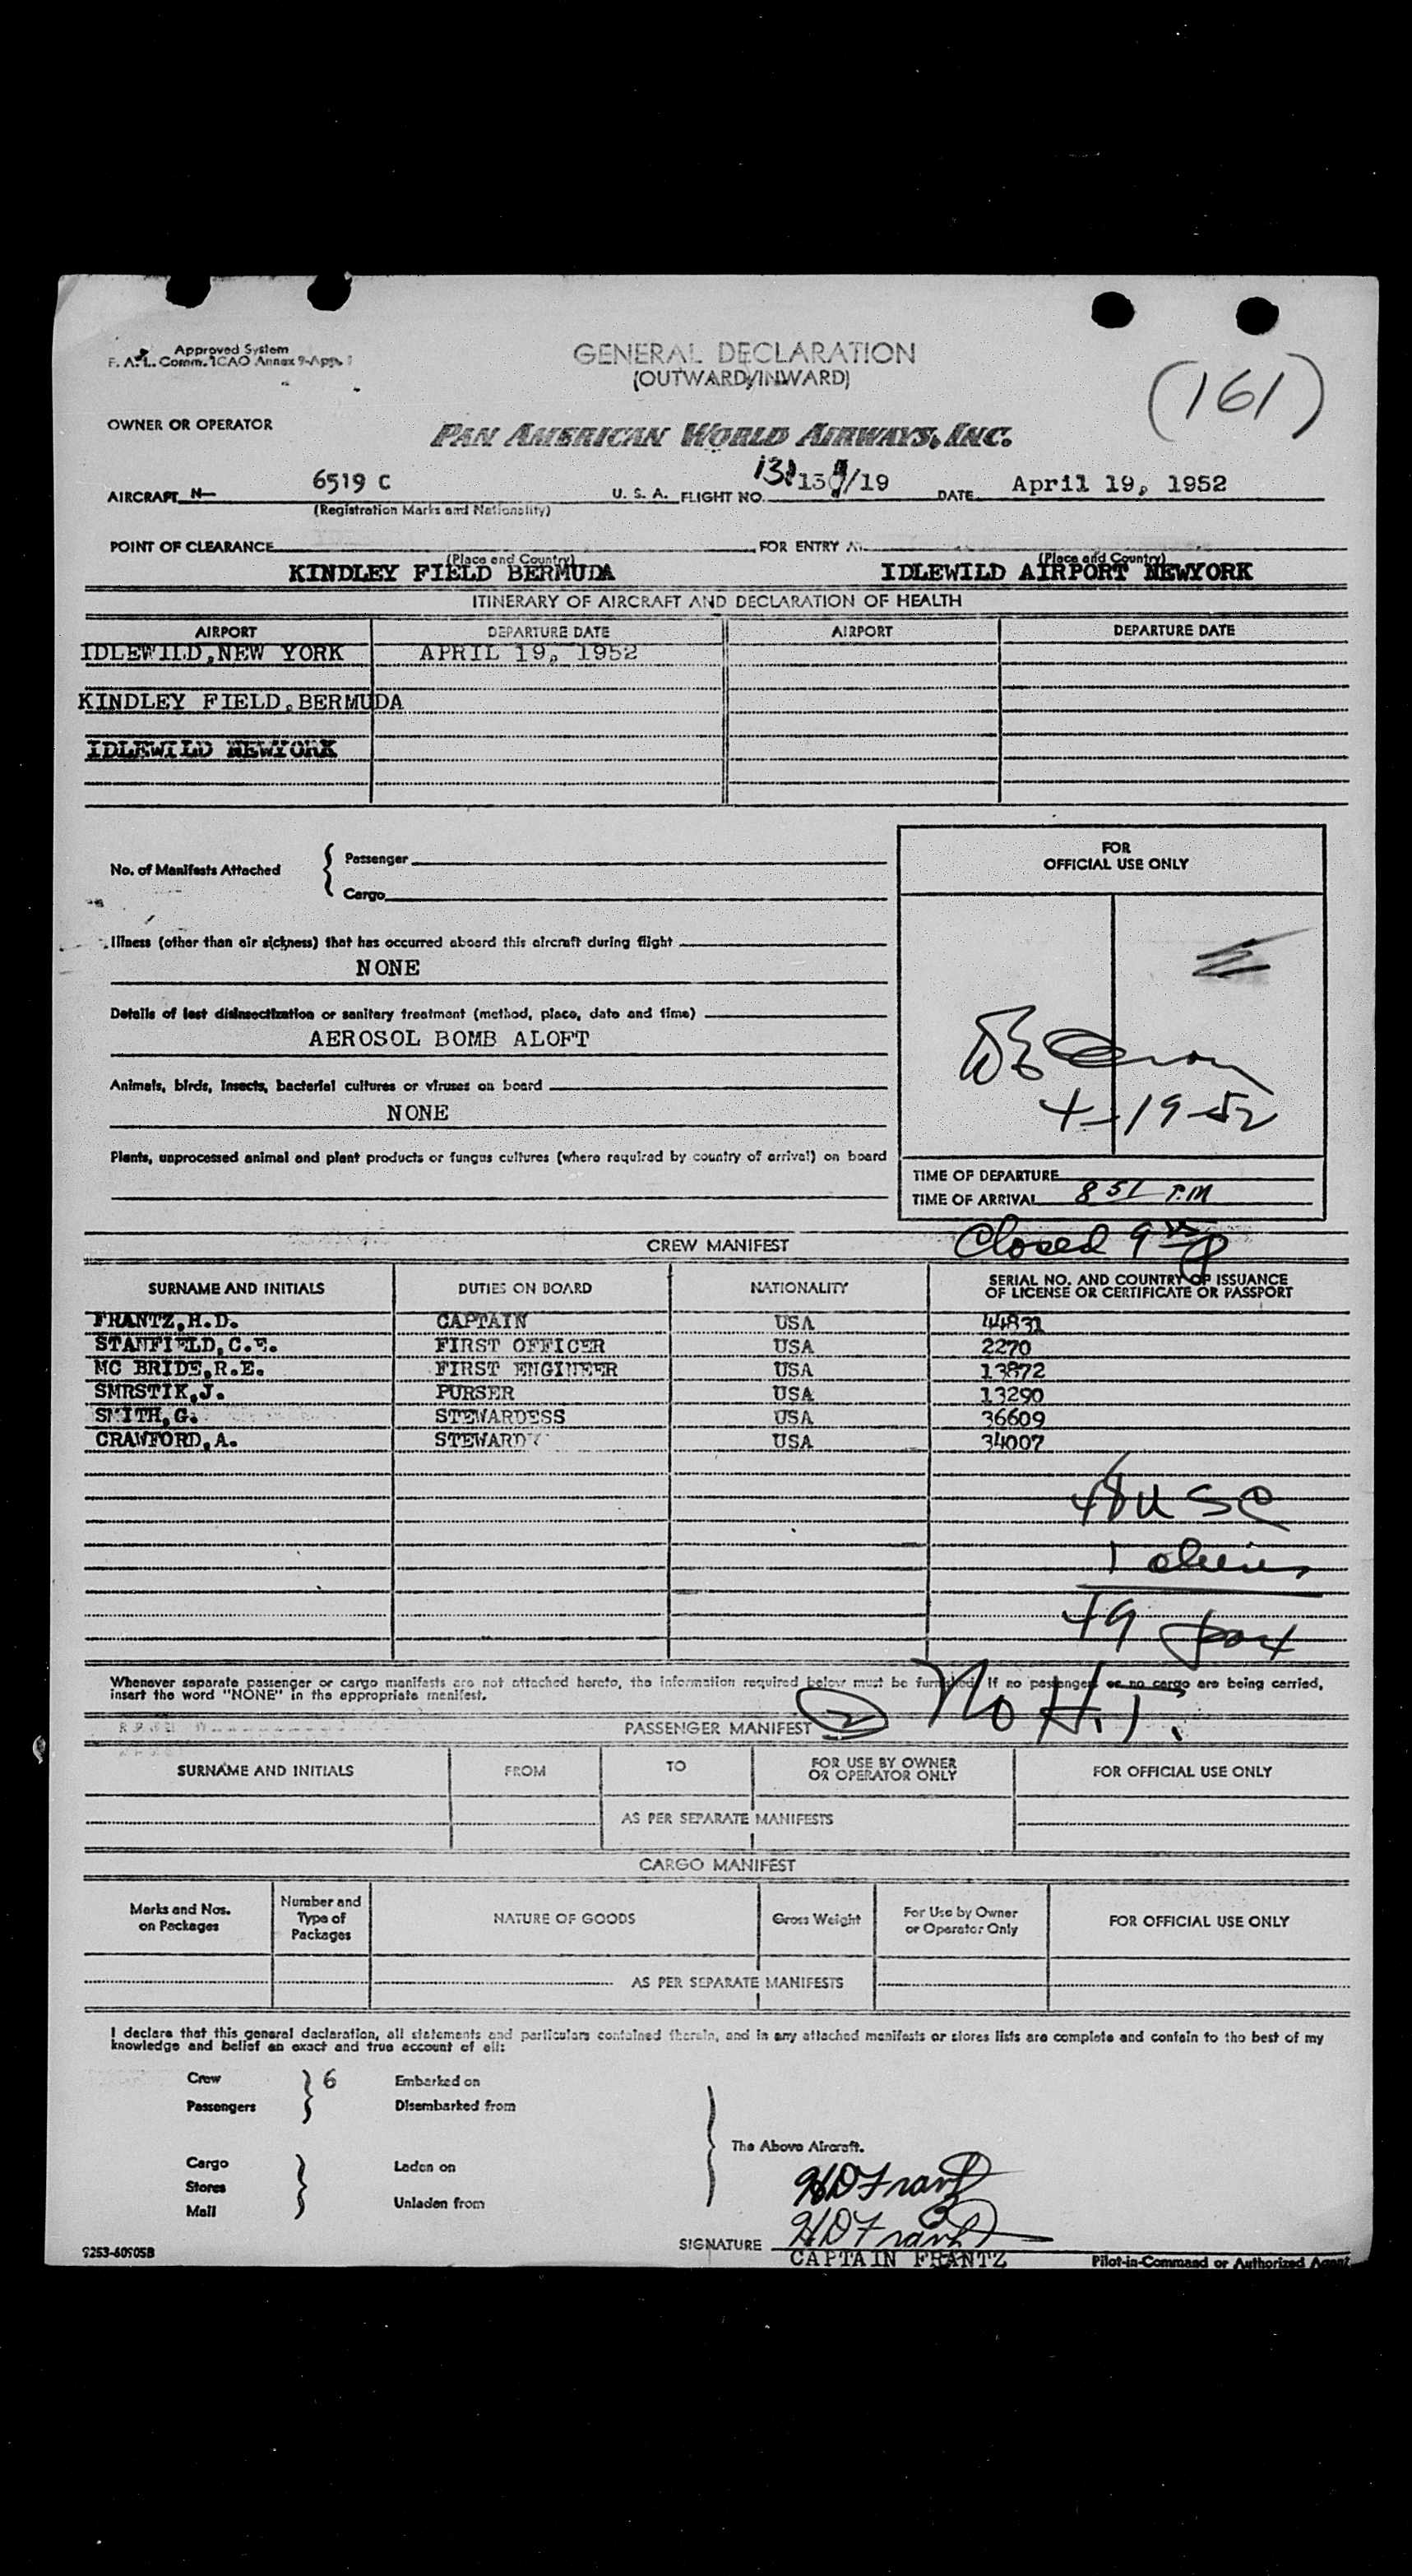 Approved System
F. A. L. Comm. ICAO Annex 9-App. 1
GENERAL DECLARATION
(OUTWARD/INWARD)
(161)
OWNER OR OPERATOR
PAN AMERICAN WORLD AIRWAYS, INC.
AIRCRAFT N- 6519 C U. S. A. FLIGHT NO. 138/19 DATE April 19, 1952
(Registration Marks and Nationality)
POINT OF CLEARANCE FOR ENTRY AT
(Place and Country) (Place and Country)
KINDLEY FIELD BERMUDA IDLEWILD AIRPORT NEWYORK
ITINERARY OF AIRCRAFT AND DECLARATION OF HEALTH
AIRPORT DEPARTURE DATE AIRPORT DEPARTURE DATE
IDLEWILD,NEW YORK APRIL 19, 1952
KINDLEY FIELD,BERMUDA
IDLEWILD NEWYORK
FOR
OFFICIAL USE ONLY
No. of Manifests Attached { Passenger
Cargo
Illness (other than air sickness) that has occurred aboard this aircraft during flight
NONE
Details of last disinsectization or sanitary treatment (method, place, date and time)
AEROSOL BOMB ALOFT
Animals, birds, insects, bacterial cultures or viruses on board
NONE
4-19-52
Plants, unprocessed animal and plant products or fungus cultures (where required by country of arrival) on board
TIME OF DEPARTURE
TIME OF ARRIVAL 8 51 P.M
Closed
CREW MANIFEST
SURNAME AND INITIALS DUTIES ON BOARD NATIONALITY SERIAL NO. AND COUNTRY OF ISSUANCE
OF LICENSE OR CERTIFICATE OR PASSPORT
FRANTZ,H.D. CAPTAIN USA 44831
STANFIELD,C.E. FIRST OFFICER USA 2270
MC BRIDE,R.E. FIRST ENGINEER USA 13872
SMRSTIK,J. PURSER USA 13290
SMITH,G. STEWARDESS USA 36609
CRAWFORD,A. STEWARD USA 34007
48 USC
1 alien
49 pax
Whenever separate passenger or cargo manifests are not attached hereto, the information required below must be furnished. If no passengers or no cargo are being carried,
insert the word "NONE" in the appropriate manifest.
No H.T.
PASSENGER MANIFEST
SURNAME AND INITIALS FROM TO FOR USE BY OWNER
OR OPERATOR ONLY FOR OFFICIAL USE ONLY
AS PER SEPARATE MANIFESTS
CARGO MANIFEST
Marks and Nos.
on Packages Number and
Type of
Packages NATURE OF GOODS Gross Weight For Use by Owner
or Operator Only FOR OFFICIAL USE ONLY
AS PER SEPARATE MANIFESTS
I declare that this general declaration, all statements and particulars contained therein, and in any attached manifests or stores lists are complete and contain to the best of my
knowledge and belief an exact and true account of all:
Crew 6 Embarked on
Passengers Disembarked from
The Above Aircraft.
Cargo Laden on
Stores
Mail Unladen from
HD Frantz
SIGNATURE HD Frantz
CAPTAIN FRANTZ Pilot-in-Command or Authorized Agent
9253-60905B